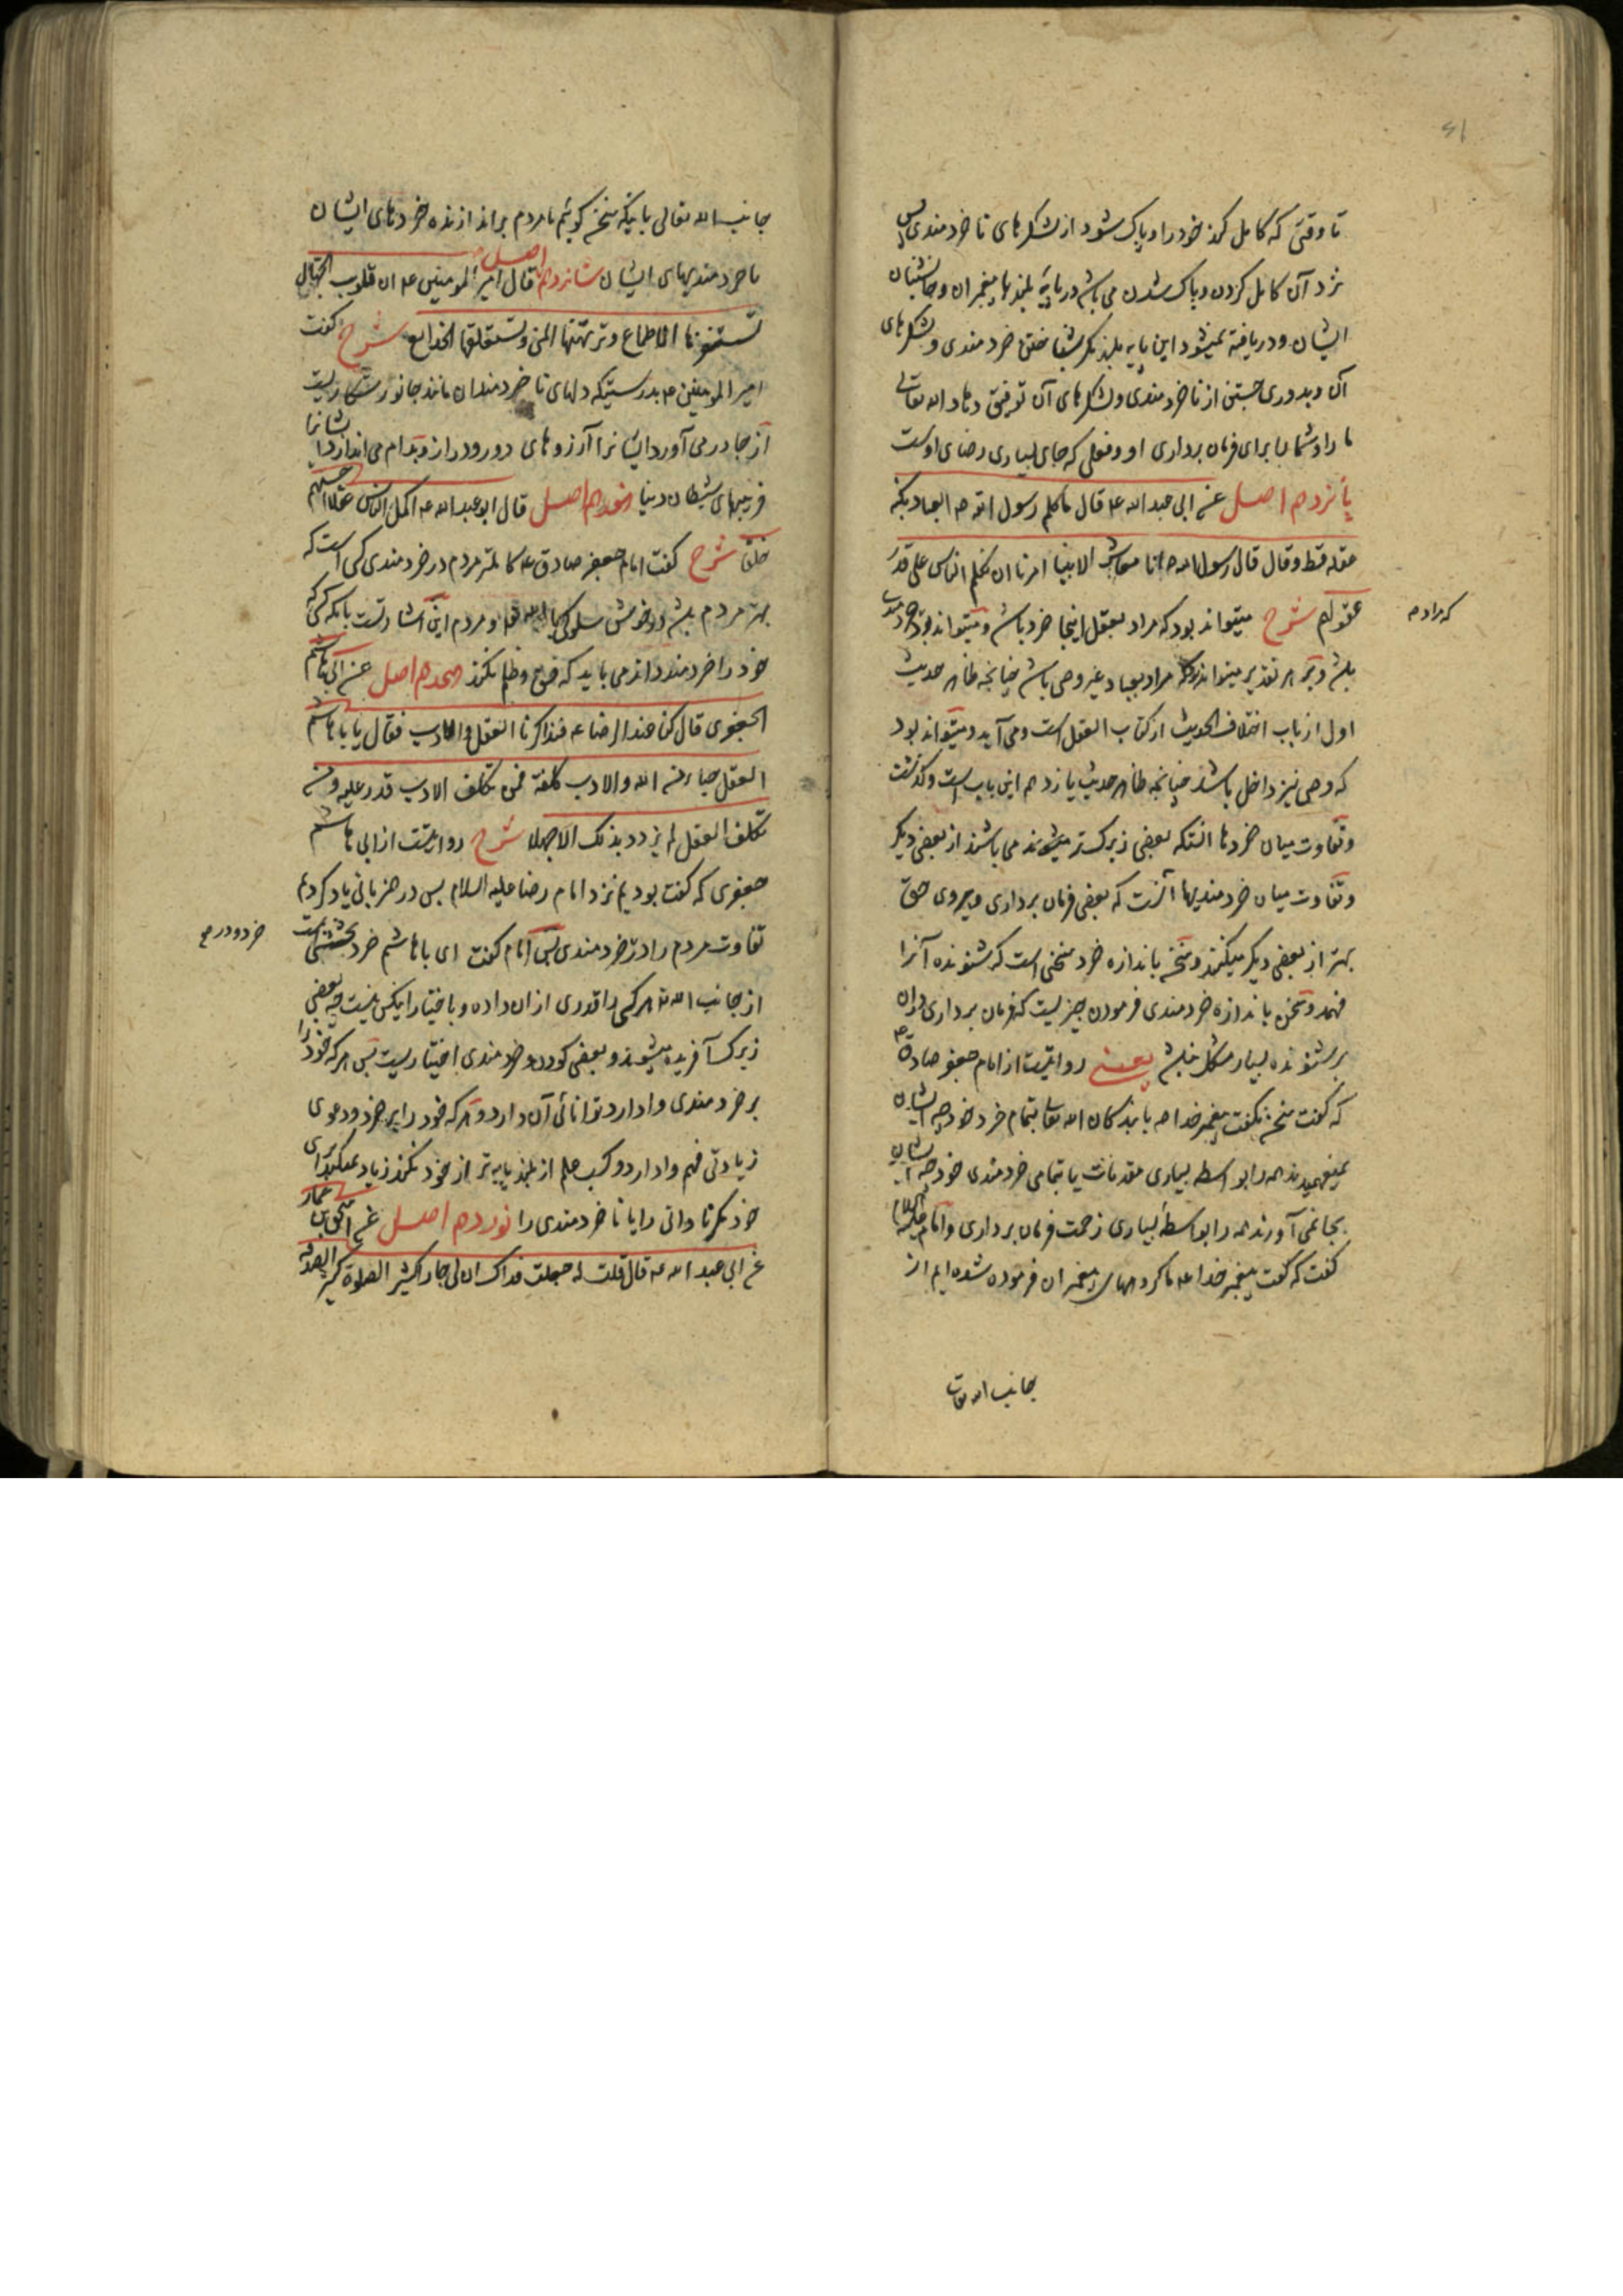 تا وقتی که کامل کند خود را و پاک شود از لشکرهای ناخردمندی پس
نزد آن کامل کردن و پاک شدن می باشد در پایهٔ بلند با پیغمبران و جانشینان
ایشان و دریافته نمیشود این پایه بلند مگر بشناختن خردمندی و لشکرهای
آن و بدوری جستن از ناخردمندی و لشکرهای آن توفیق دهاد الله تعالی
ما را و شما را برای فرمان برداری او و فعلی که جای بسیاری رضای اوست
پانزدهم اصل عن ابی عبد الله ع قال ما کلم رسول الله ص العباد بکنه
عقله قط و قال قال رسول الله ص انا معاشر الانبیا امرنا ان نکلم الناس علی قدر
عقولهم شرح میتواند بود که مراد بعقل اینجا خرد باشد و میتواند بود خردمندی
که مراد م
باشد و بر هر تقدیر میتواند بود که مراد بعباد غیر وصی باشد چنانچه ظاهر حدیث
اول از باب اختلاف الحدیث از کتاب العقل است و می آید و میتواند بود
که وصی نیز داخل باشد چنانچه ظاهر حدیث یازدهم این باب است و گذشت
و تفاوت میان خردها آنستکه بعضی زیرک تر میشوند می باشند از بعضی دیگر
و تفاوت میان خردمندیها آنست که بعضی فرمان برداری و پیروی حق
بهتر از بعضی دیگر میکنند و سخن باندازه خرد سخنی است که شنونده آنرا
فهمد و سخن باندازه خردمندی فرمودن چیزیست که فرمان برداری در آن
بر شنونده بسیار مشکل نباشد یعنی روایتست از امام جعفر صادق ع
که گفت سخن نگفت پیغمبر خدا ص با بندگان الله تعالی بتمام خرد خود چه ایشان
نمیفهمیدند همه را بواسطه بسیاری مقدمات یا بتمامی خردمندی خود چه ایشان
بجا نمی آورند همه را بواسطهٔ بسیاری زحمت فرمان برداری و امام علیه السلام
گفت که گفت پیغمبر خدا ص ما گروههای پیغمبران فرموده شده ایم از
جانب الله تعا
جانب الله تعالی باینکه سخن گوئیم با مردم بر اندازنده خردهای ایشان
یا خردمندیهای ایشان شانزدهم اصل قال امیر المومنین ع ان قلوب الجهال
تستفزها الاطماع و ترتهنها المنی و تستعلقها الخدایع شرح گفت
امیر المومنین ع بدرستیکه دلهای ناخردمندان مانند جانور شکاریست
از جا در می آورد ایشانرا آرزوهای دور و دراز و بدام می اندازد ایشانرا
فریبهای شیطان و دنیا هفدهم اصل قال ابو عبد الله ع اکمل الناس عقلا احسنهم
خلقا شرح گفت امام جعفر صادق ع کاملتر مردم در خردمندی کسی است که
بهتر مردم باشد در خوش سلوکی با الله تعالی و مردم این اشارتست بانکه کسی که
خود را خردمند داند می باید که فسق و ظلم نکند هجدهم اصل عن ابی هاشم
الجعفری قال کنا عند الرضا ع فتذاکرنا العقل و الادب فقال یا با هاشم
العقل حباء من الله و الادب کلفة فمن تکلف الادب قدر علیه و من
تکلف العقل لم یزدد بذلک الا جهلا شرح روایتست از ابی هاشم
جعفری که گفت بودیم نزد امام رضا علیه السلام پس در هم زبانی یاد کردیم
تفاوت مردم را در خردمندی پس امام گفت ای با هاشم خرد بخششی است
خرد و در ص
از جانب الله تعالی هر کسی را قدری از ان داده و باختیار این کس نیست چه بعضی
زیرک آفریده میشوند و بعضی کودن و خردمندی اختیاریست پس هر که خود را
بر خردمندی وادارد توانائی آن دارد و هر که خود را بر خرد و دعوی
زیادتی فهم وادارد و کسب علم از بلند پایه تر از خود نکند زیاد نمیکند برای
خود مگر نادانی را یا ناخردمندی را نوزدهم اصل عن اسحق بن عمار
عن ابی عبد الله ع قال قلت له جعلت فداک ان لی جارا کثیر الصلوة کثیر الصدقه